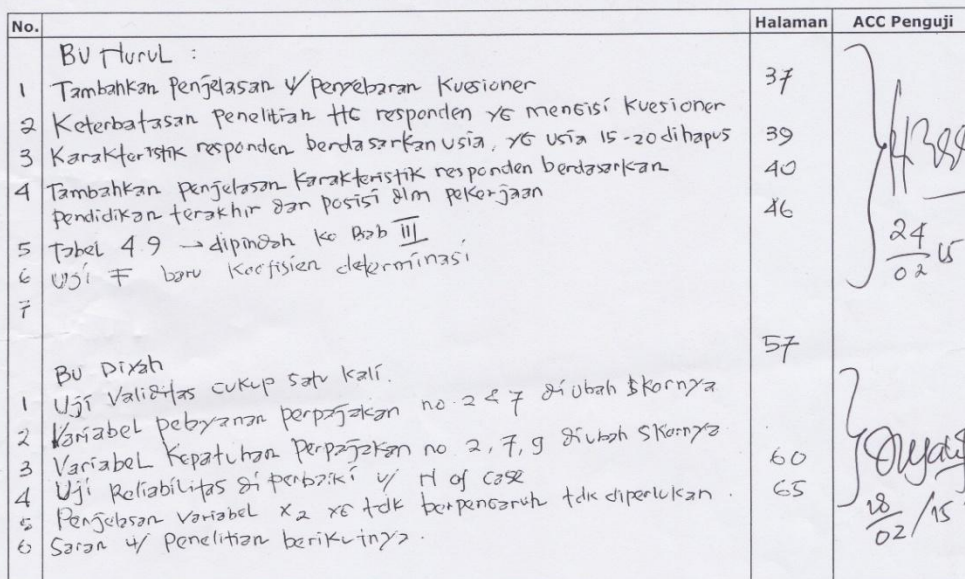 No. Halaman ACC Penguji
BU Nurul :
1 Tambahkan Penjelasan u/ Penyebaran Kuesioner 37
2 Keterbatasan Penelitian ttg responden yg mengisi kuesioner
3 Karakteristik responden berdasarkan usia, yg usia 15-20 dihapus 39
4 Tambahkan penjelasan karakteristik responden berdasarkan 40
pendidikan terakhir dan posisi dlm pekerjaan 46
5 Tabel 4.9 → dipindah ke Bab III
6 Uji F baru Koefisien determinasi
7
24/02 15
57
BU Diyah
1 Uji Validitas cukup satu kali.
2 Variabel pelayanan perpajakan no. 2 & 7 diubah skornya
3 Variabel Kepatuhan Perpajakan no 2, 7, 9 diubah skornya
4 Uji Reliabilitas diperbaiki u/ N of case 60
5 Penjelasan variabel X2 yg tdk berpengaruh tdk diperlukan. 65
6 Saran u/ penelitian berikutnya.
18/02/15